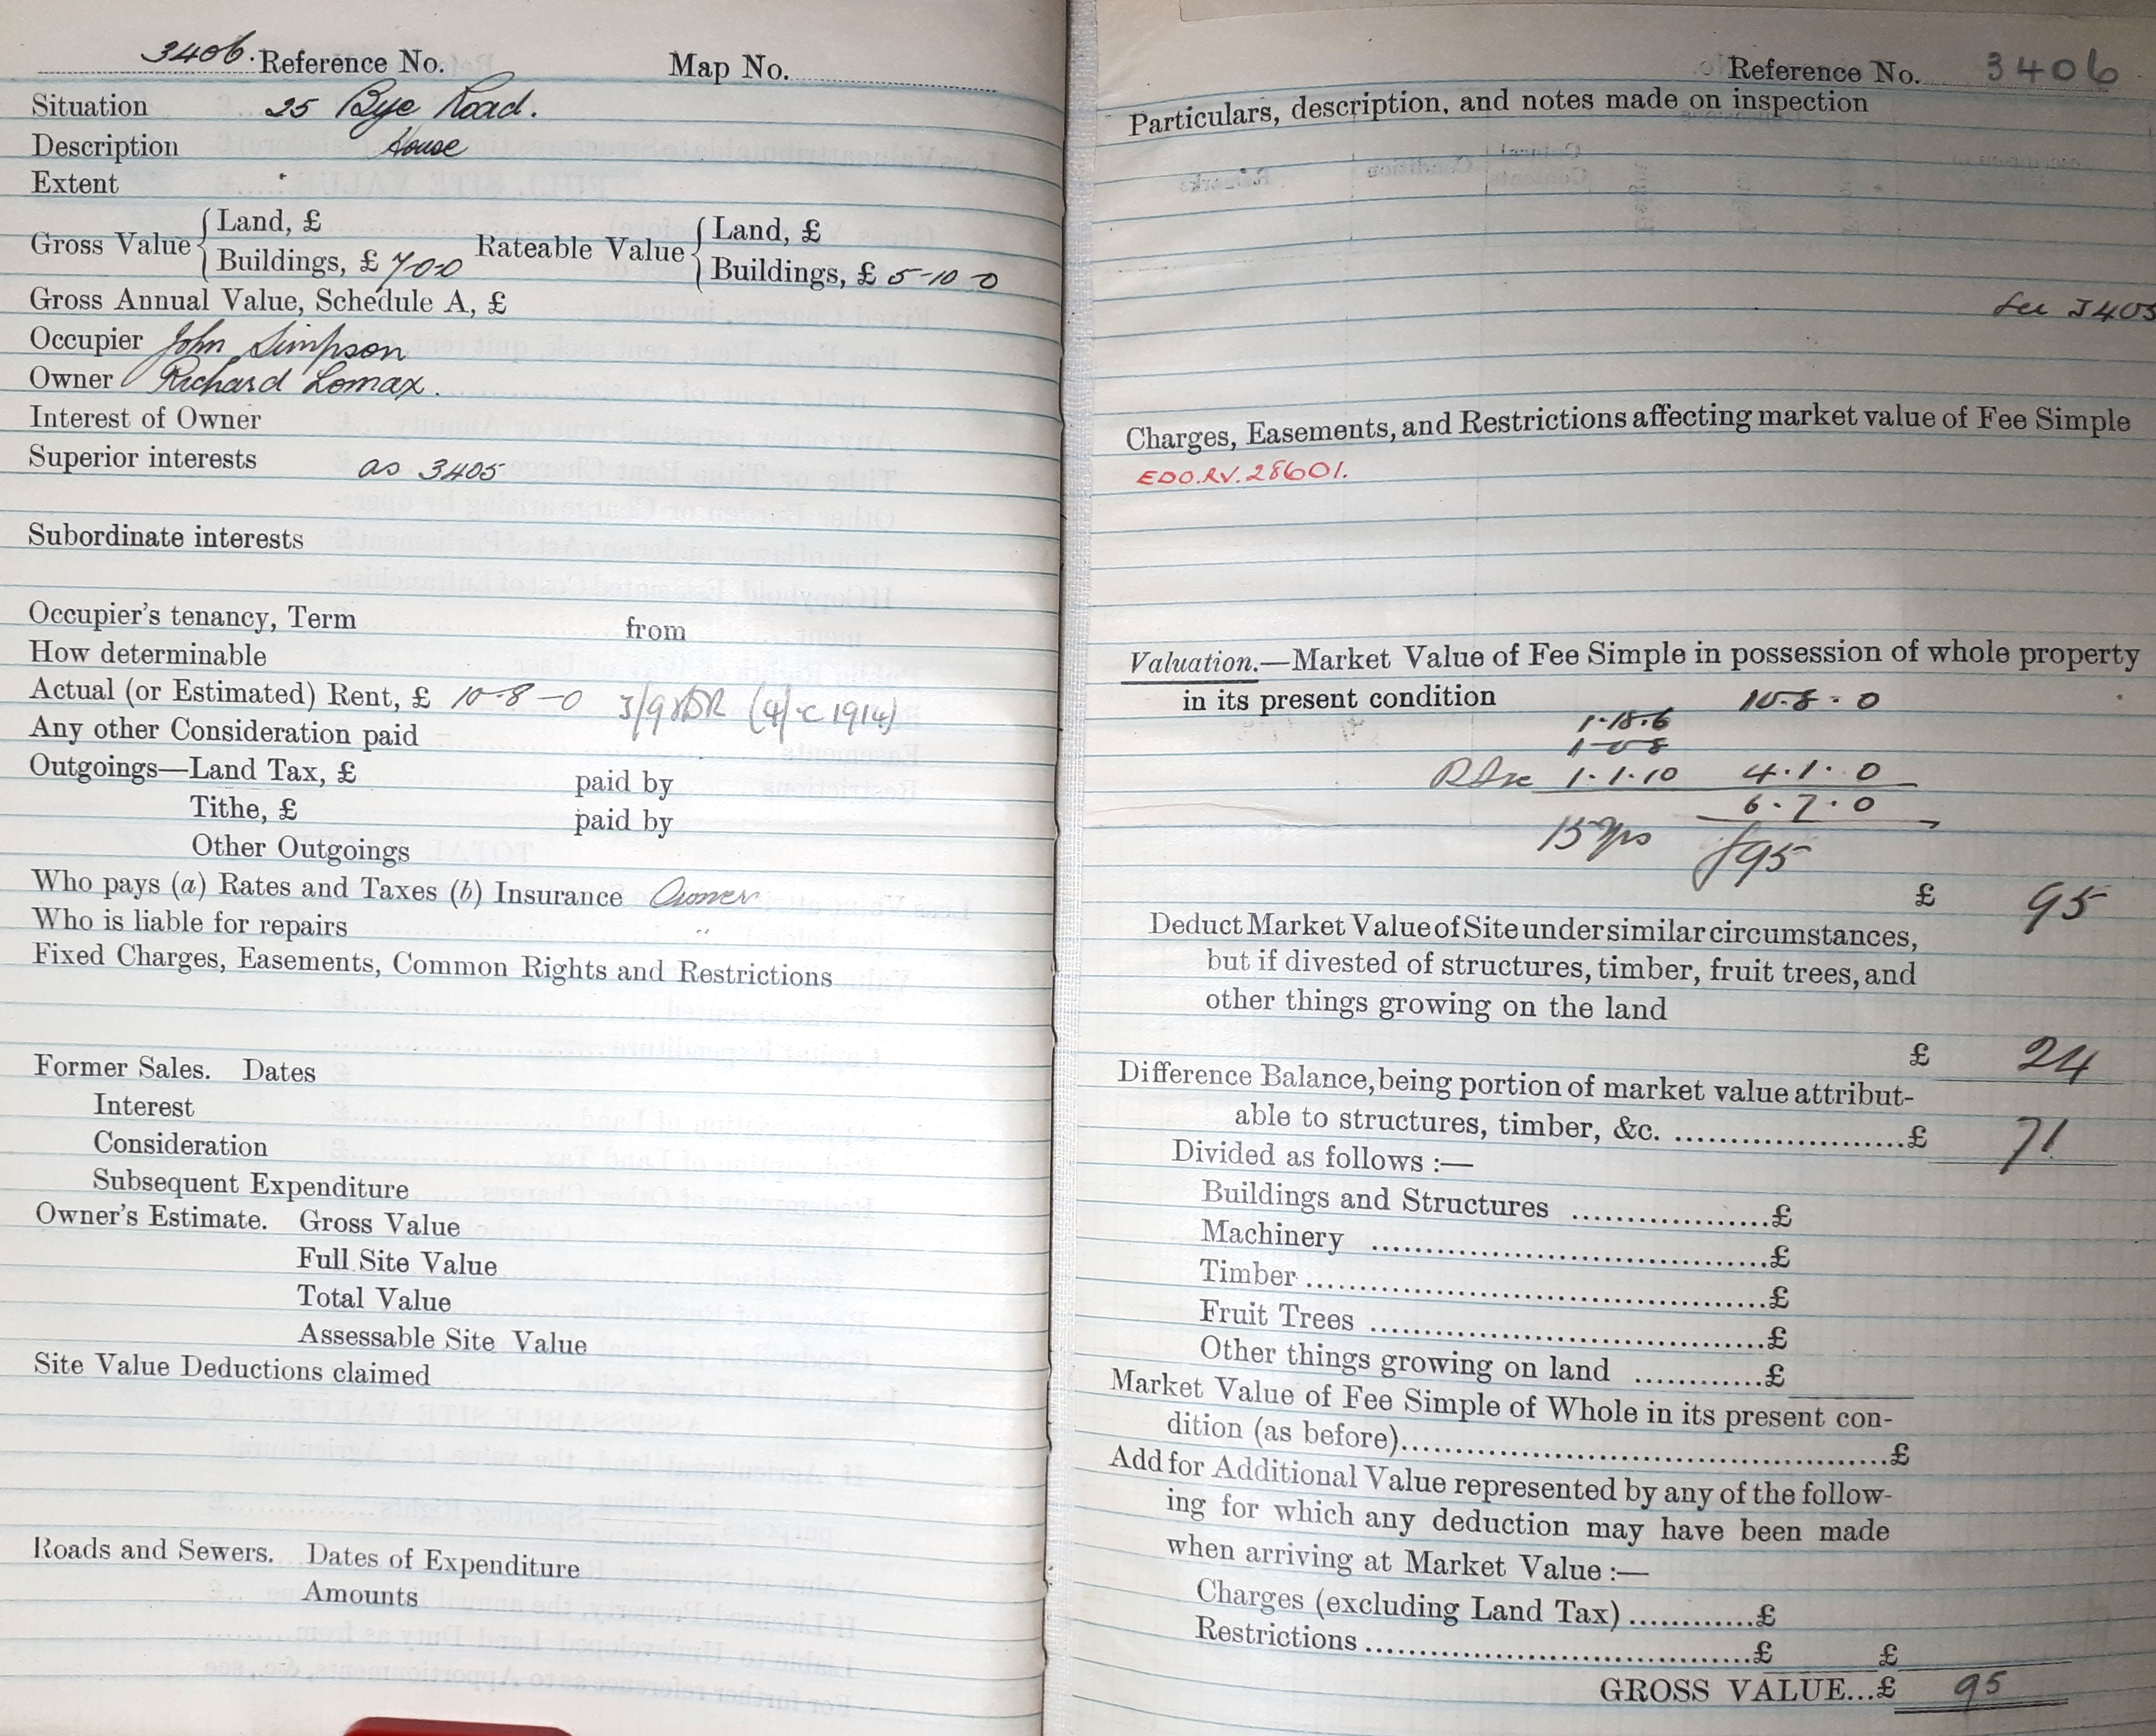 3406. Reference No. Map No.
Situation 25 Bye Road.
Description House
Extent
Gross Value { Land, £ Rateable Value { Land, £
Buildings, £ 7-0-0 Buildings, £ 5-10-0
Gross Annual Value, Schedule A, £
Occupier John Simpson
Owner Richard Lomax.
Interest of Owner
Superior interests as 3405
Subordinate interests
Occupier's tenancy, Term from
How determinable
Actual (or Estimated) Rent, £ 10-8-0 3/9 (4/- c 1914)
Any other Consideration paid
Outgoings—Land Tax, £ paid by
Tithe, £ paid by
Other Outgoings
Who pays (a) Rates and Taxes (b) Insurance Owner
Who is liable for repairs "
Fixed Charges, Easements, Common Rights and Restrictions
Former Sales. Dates
Interest
Consideration
Subsequent Expenditure
Owner's Estimate. Gross Value
Full Site Value
Total Value
Assessable Site Value
Site Value Deductions claimed
Roads and Sewers. Dates of Expenditure
Amounts
Reference No. 3406
Particulars, description, and notes made on inspection
See 3405
Charges, Easements, and Restrictions affecting market value of Fee Simple
EDO.RV.28601.
Valuation.—Market Value of Fee Simple in possession of whole property
in its present condition 10-8-0
1-18-6
1-0-8
1.1.10 4.1.0
6.7.0
15 yrs £95
£ 95
Deduct Market Value of Site under similar circumstances,
but if divested of structures, timber, fruit trees, and
other things growing on the land
£ 24
Difference Balance, being portion of market value attribut-
able to structures, timber, &c. ......................£ 71
Divided as follows :—
Buildings and Structures ...................£
Machinery .......................................£
Timber.............................................£
Fruit Trees .......................................£
Other things growing on land ............£
Market Value of Fee Simple of Whole in its present con-
dition (as before)..............................................£
Add for Additional Value represented by any of the follow-
ing for which any deduction may have been made
when arriving at Market Value :—
Charges (excluding Land Tax) ............£
Restrictions.....................................£ £
GROSS VALUE...£ 95